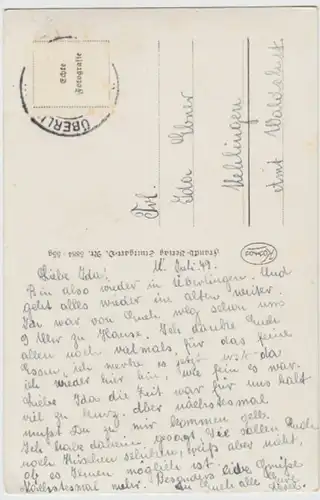 Echte
Fotografie
ÜBERLI
Frl.
Ida Ebner
Uehlingen
Amt Waldshut.
Kosmos
Franckh-Verlag Stuttgart-O. Nr.
Liebe Ida! 11. Juli 49.
Bin also wieder in Überlingen. Und
geht alles wieder im alten weiter.
Ida war von Euch weg schon um
9 Uhr zu Hause. Ich danke Euch
allen noch vielmals, für das feine
Essen, ich merke es jetzt erst da
ich wieder hier bin, wie fein es war.
Liebe Ida die Zeit war für uns halt
viel zu kurz. Aber nächstesmal
mußt Du zu mir kommen gell.
Ich habe daheim gesagt Sie sollen Euch
noch Kirschen schicken, weiß aber nicht,
ob es Ihnen möglich ist. Besonders liebe Grüße
Nächstesmal mehr. an Euch alle Eure